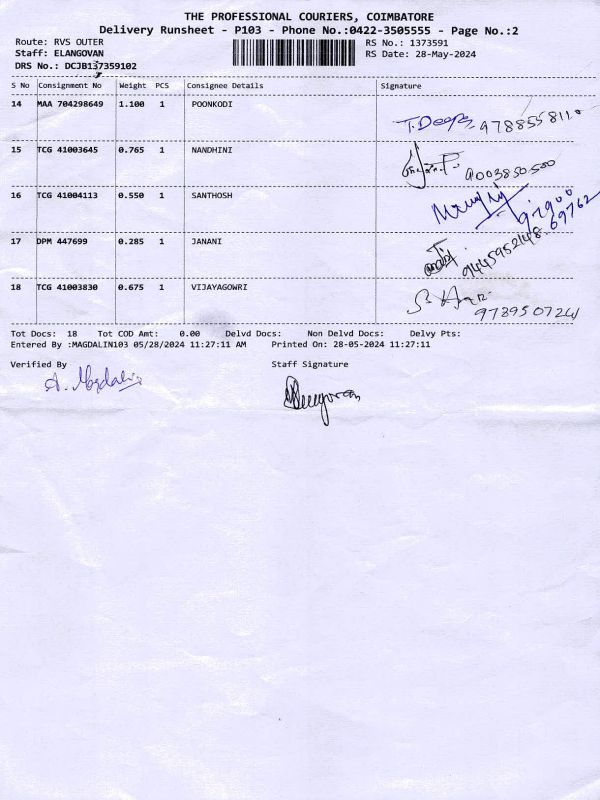 THE PROFESSIONAL COURIERS, COIMBATORE
Delivery Runsheet - P103 - Phone No.:0422-3505555 - Page No.:2
Route: RVS OUTER RS No.: 1373591
Staff: ELANGOVAN RS Date: 28-May-2024
DRS No.: DCJB137359102
S No Consignment No Weight PCS Consignee Details Signature
14 MAA 704298649 1.100 1 POONKODI
T.Deepa 9788558110
15 TCG 41003645 0.765 1 NANDHINI
9003850500
16 TCG 41004113 0.550 1 SANTHOSH
97900 69762
17 DPM 447699 0.285 1 JANANI
9445952148
18 TCG 41003830 0.675 1 VIJAYAGOWRI
9789507241
Tot Docs: 18 Tot COD Amt: 0.00 Delvd Docs: Non Delvd Docs: Delvy Pts:
Entered By :MAGDALIN103 05/28/2024 11:27:11 AM Printed On: 28-05-2024 11:27:11
Verified By Staff Signature
A. Magdalin